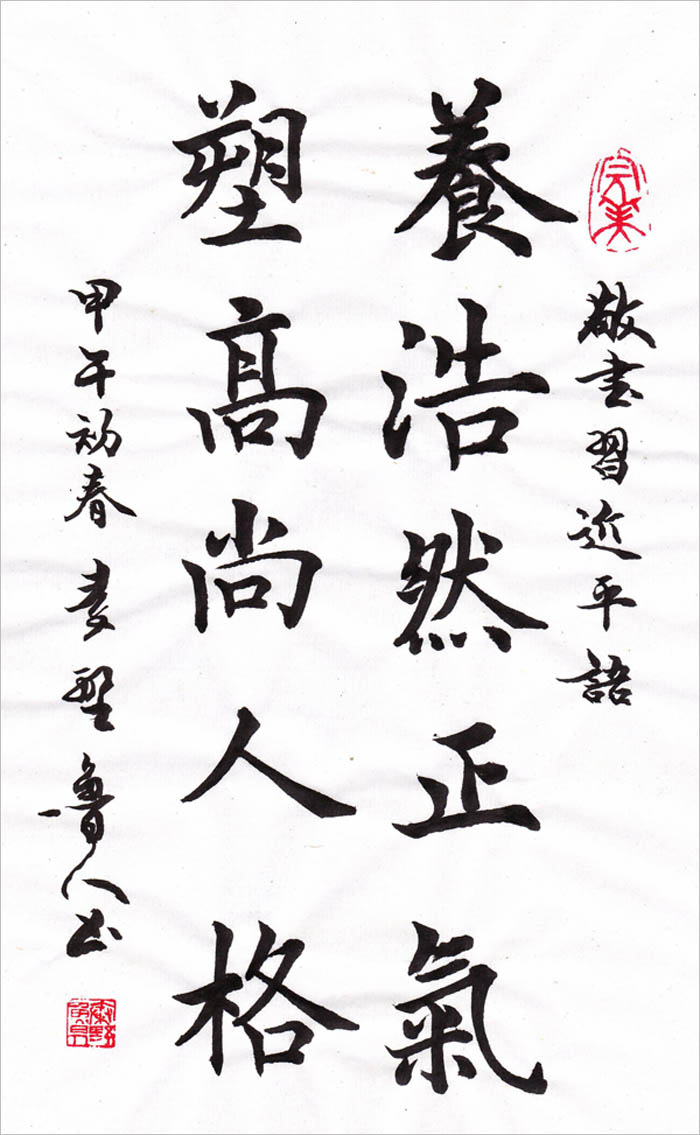 敬書習近平語
養浩然正氣
塑高尚人格
甲午初春 魯人书